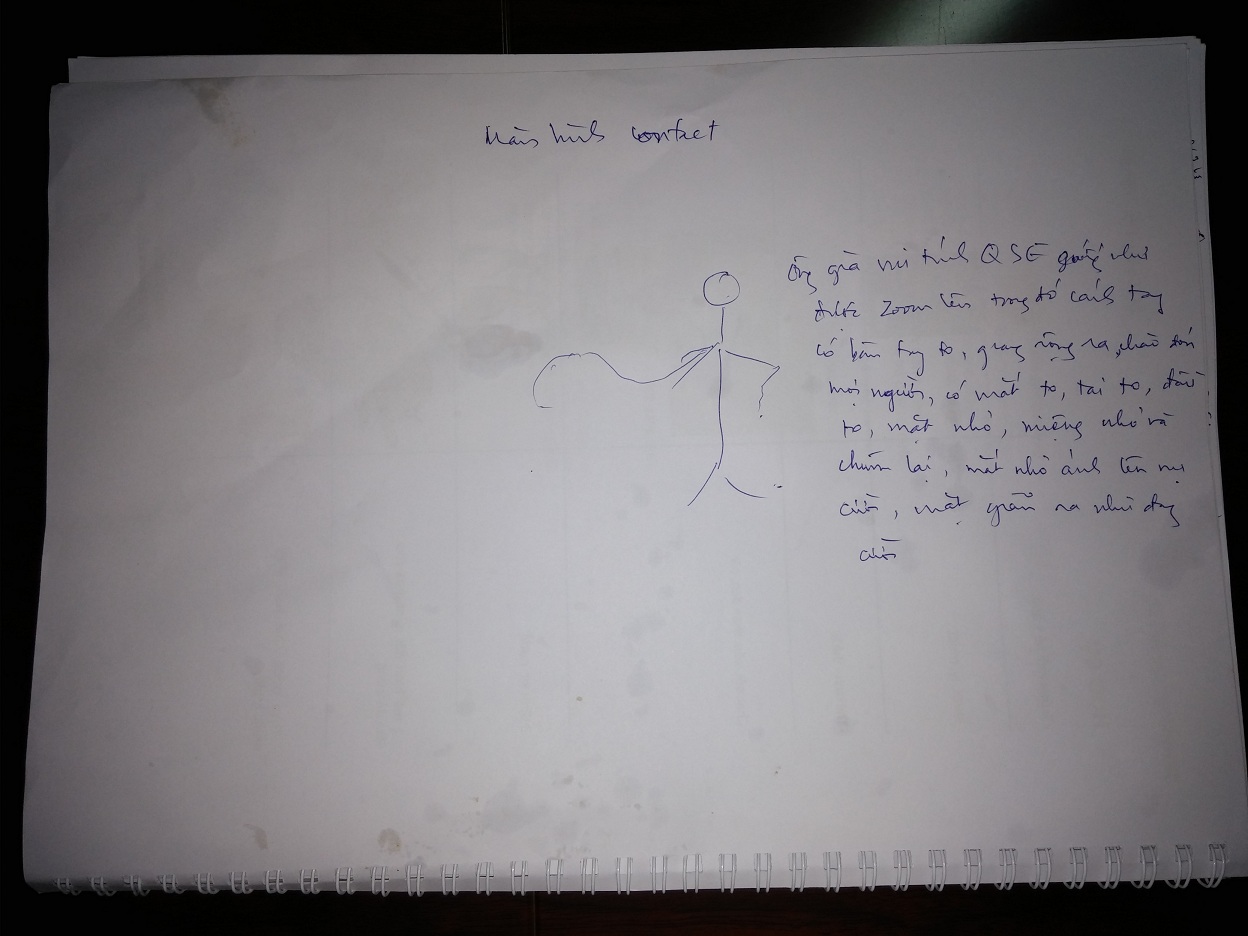 Màn hình contact
Ông già vui tính QSE giống như
được Zoom lên trong đó cánh tay
có bàn tay to, giang rộng ra, chào đón
mọi người, có mắt to, tai to, đầu
to, mặt nhỏ, miệng nhỏ và
chúm lại, mắt nhỏ ánh lên nụ
cười, mặt giãn ra như đang
cười